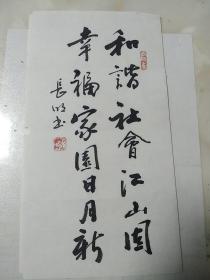 和諧社會江山固
幸福家園日月新
長明书